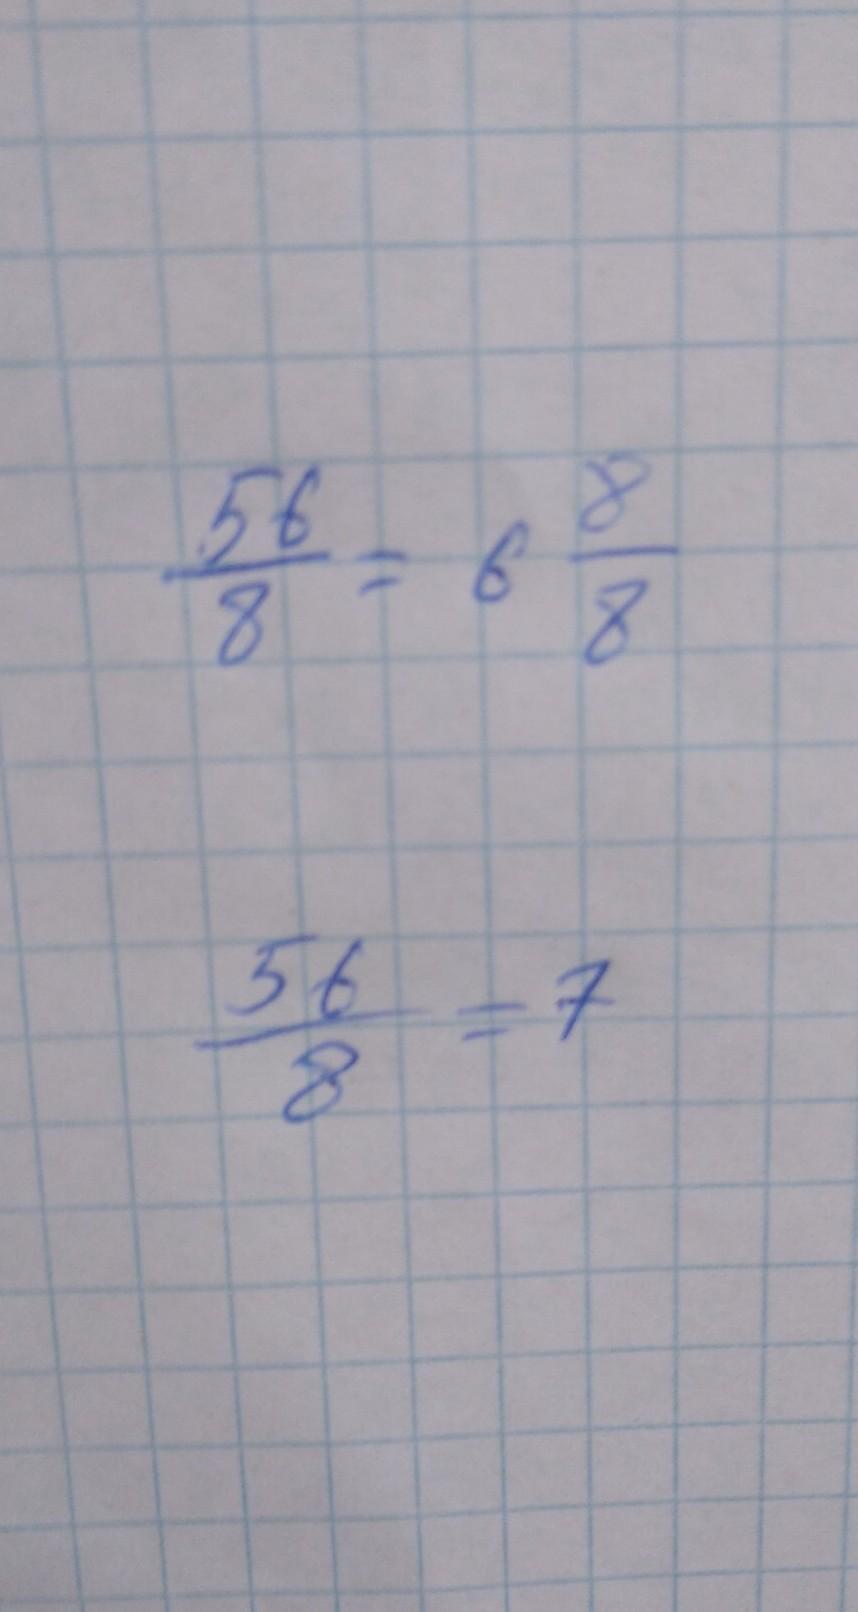 56/8 = 6 8/8
56/8 = 7